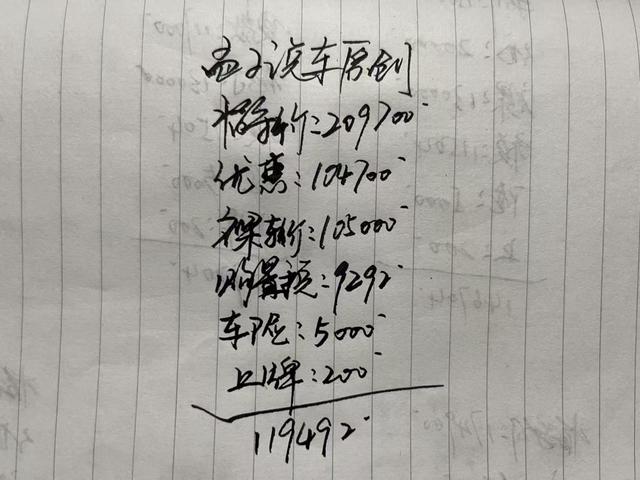 孟子说车原创
指导价:209700
优惠:104700
裸车价:105000
购置税:9292
车险:5000
上牌:200
119492